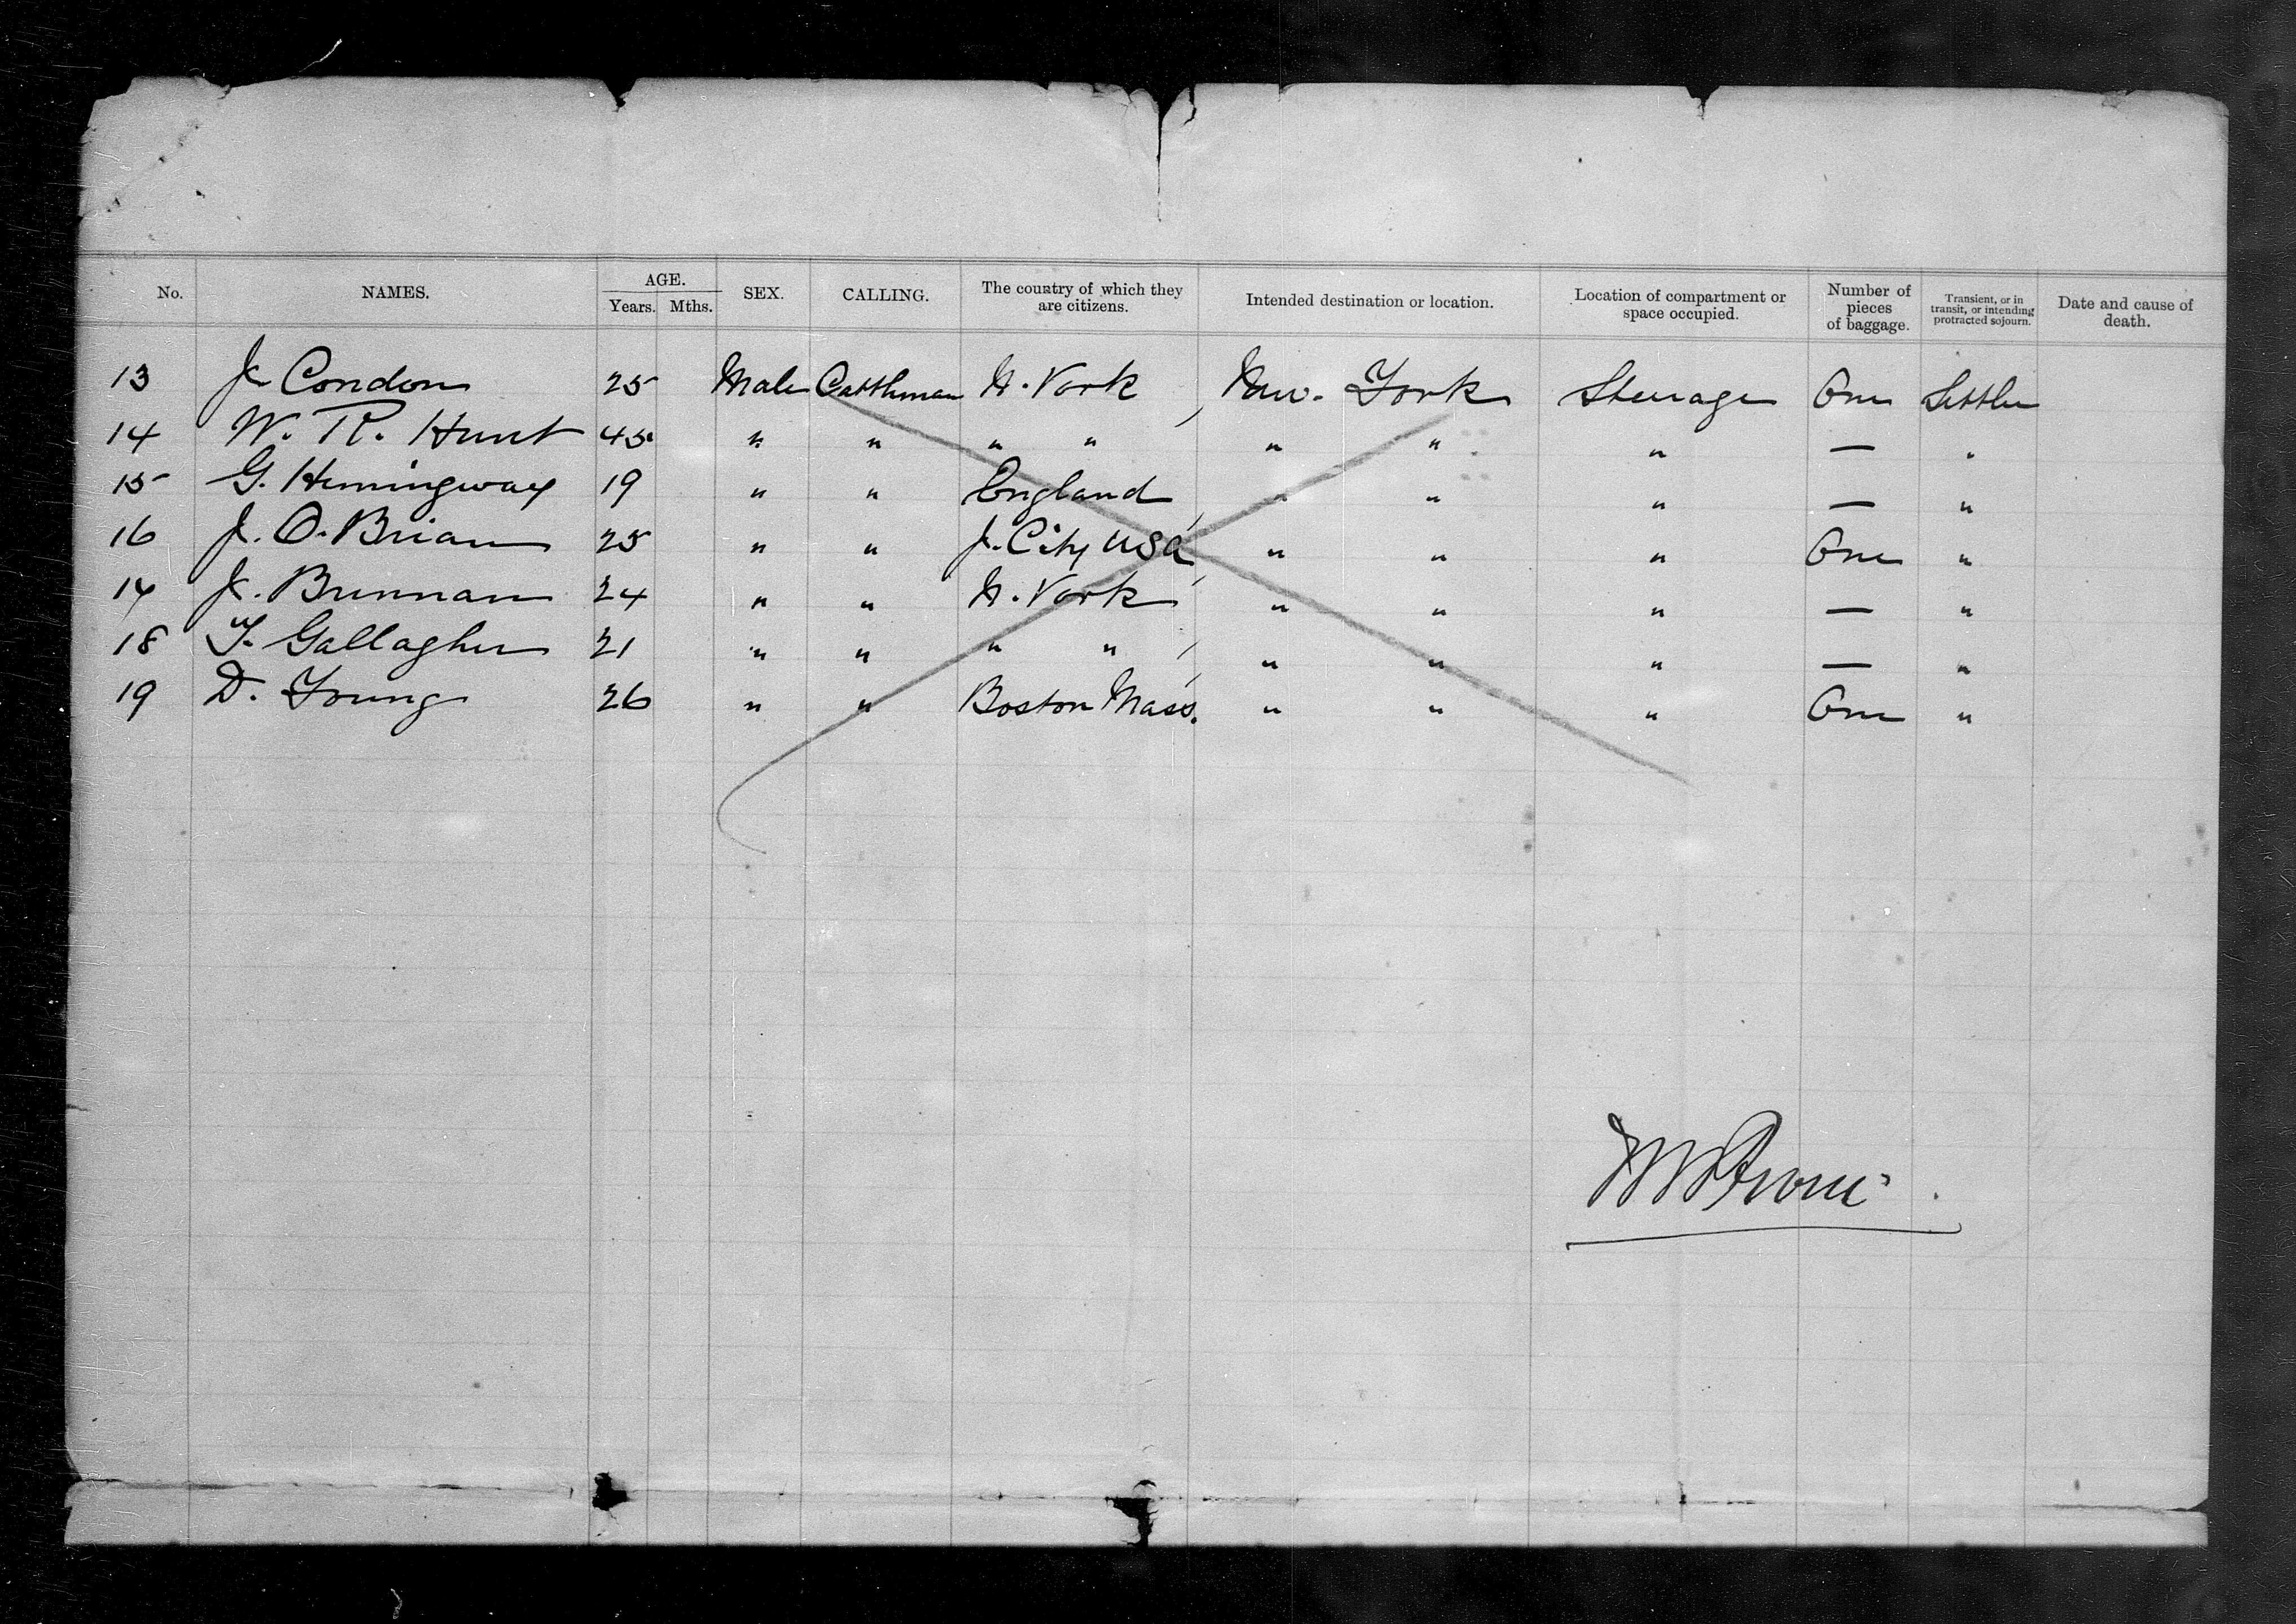 No. NAMES. AGE. Years. Mths. SEX. CALLING. The country of which they are citizens. Intended destination or location. Location of compartment or space occupied. Number of pieces of baggage. Transient, or in transit, or intending protracted sojourn. Date and cause of death.
13 J. Condon 25 Male Cattleman N. York New York Steerage One Settler
14 W. R. Hunt 45 " " " " " " " — "
15 G. Hemingway 19 " " England " " " — "
16 J. O. Brian 25 " " J. City USA " " " One "
17 J. Brennan 24 " " N. York " " " — "
18 T. Gallagher 21 " " " " " " " — "
19 D. Young 26 " " Boston Mass. " " " One "